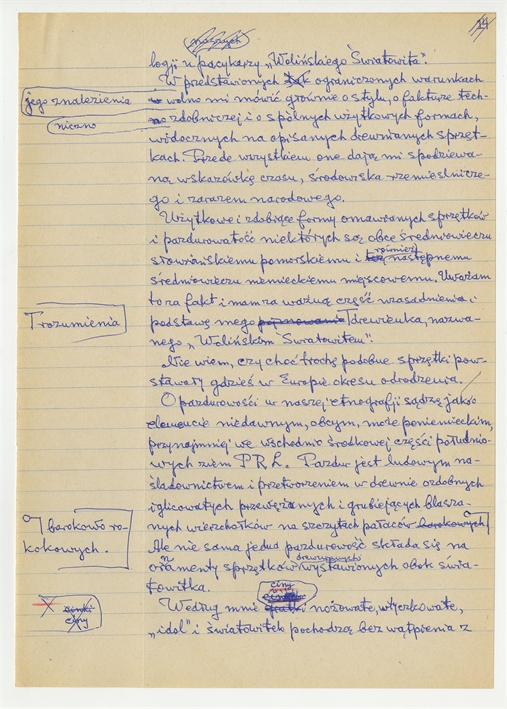 14
naszych
logji u pacykarzy „Wolińskiego Światowita".
W przedstawionych tak ograniczonych warunkach
jego znalezienia
wolno mi mówić głównie o stylu, o fakturze tech-
niczno
zdobniczej i o spólnych użytkowych formach,
widocznych na opisanych drewnianych sprzęt-
kach. Przede wszystkiem one dają mi spodziewa-
ną wskazówkę czasu, środowiska rzemieślnicze-
go i zarazem narodowego.
Użytkowe i zdobiące formy omawianych sprzętków
i pazdurowatość niektórych są obce średniowieczu
słowiańskiemu pomorskiemu i również następnemu
średniowieczu niemieckiemu miejscowemu. Uważam
to za fakt i mam za ważną część uzasadnienia i
podstawę mego pojmowania drewienka, nazwa-
rozumienia
nego „Wolińskim Światowitem".
Nie wiem, czy choć trochę podobne sprzętki pow-
stawały gdzieś w Europie okresu odrodzenia.
O pazdurowości w naszej etnografji sądzę jako
elemencie niedawnym, obcym, może poniemieckim,
przynajmniej we wschodnio środkowej części południo-
wych ziem PRL. Pazdur jest ludowym na-
śladownictwem i przetworzeniem w drewnie ozdobnych
iglicowatych przewężanych i grubiejących blasza-
nych wierzchołków na szczytach pałaców barokowych
barokowo ro-
kokowych.
Ale nie sama jedna pazdurowość składa się na
ornamenty sprzętków drewnianych wystawionych obok świa-
towitka.
ciny
Według mnie nożowate, wtyczkowate,
„idol" i światowitek pochodzą bez wątpienia z